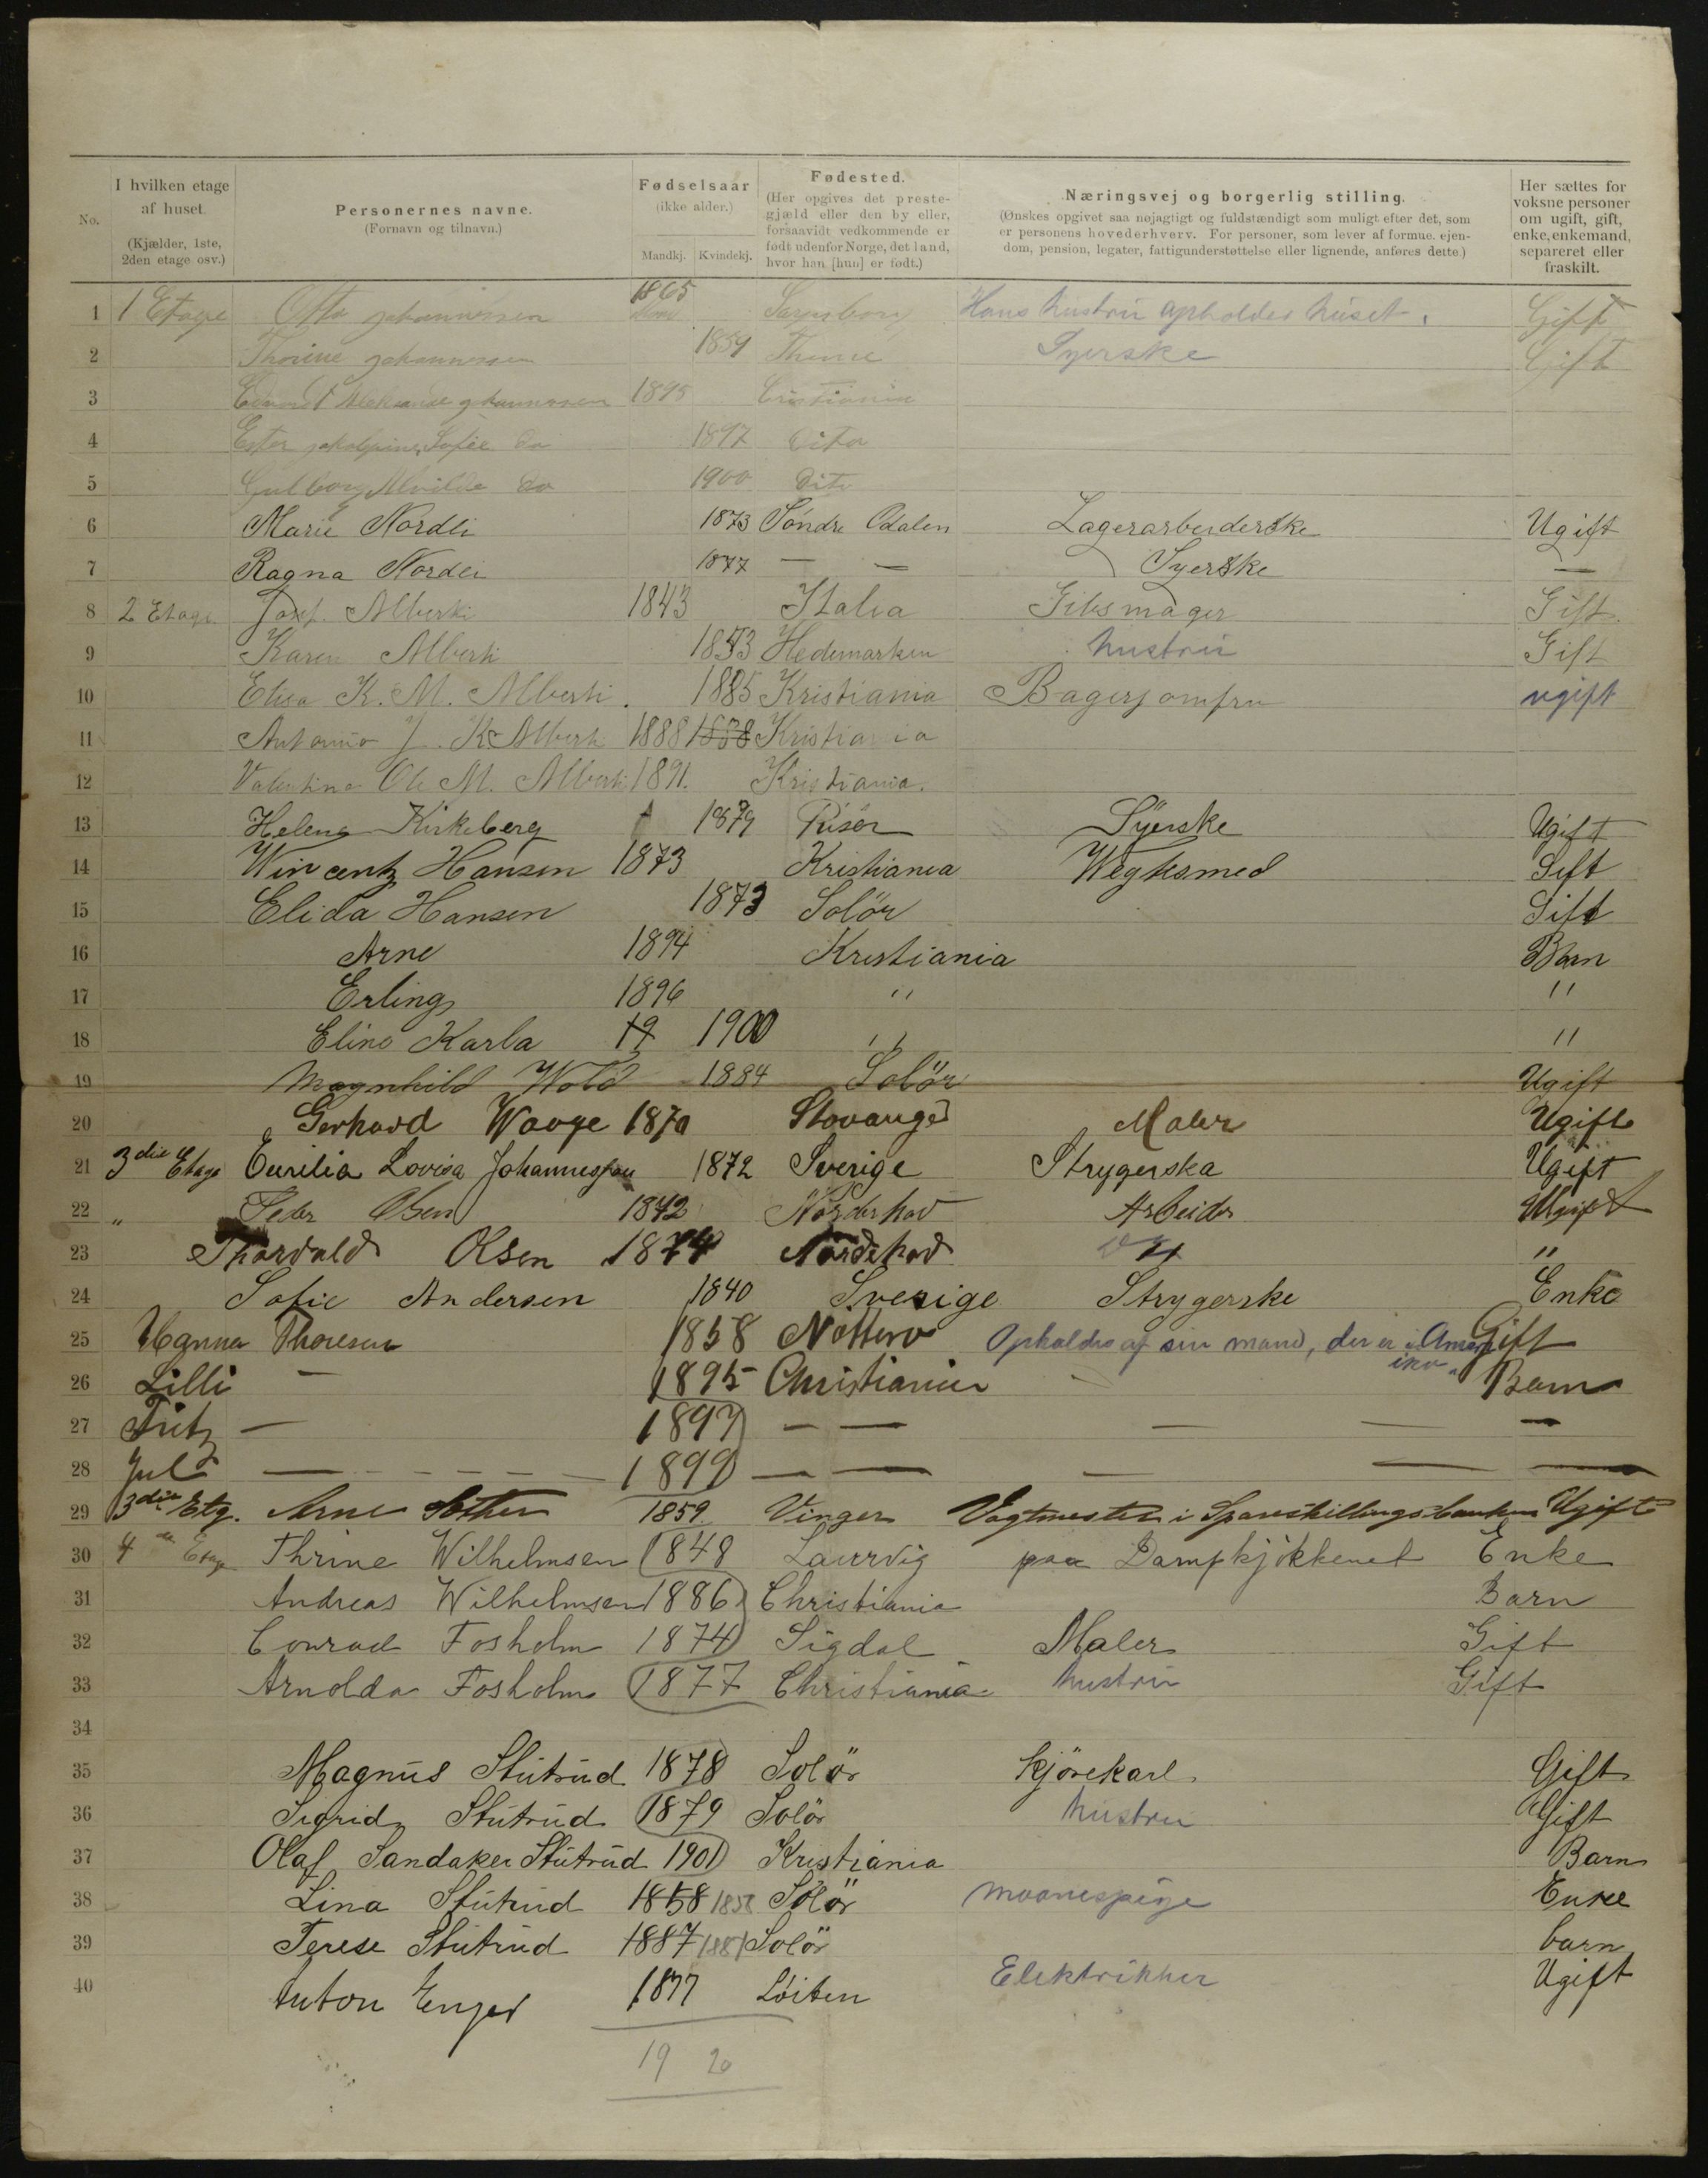 No.
I hvilken etage af huset. (Kjælder, 1ste, 2den etage osv.)
Personernes navne. (Fornavn og tilnavn.)
Fødselsaar (ikke alder.) Mandkj. Kvindekj.
Fødested. (Her opgives det prestegjæld eller den by eller, forsaavidt vedkommende er født udenfor Norge, det land, hvor han [hun] er født.)
Næringsvej og borgerlig stilling. (Ønskes opgivet saa nøjagtigt og fuldstændigt som muligt efter det, som er personens hovederhverv. For personer, som lever af formue, ejendom, pension, legater, fattigunderstøttelse eller lignende, anføres dette.)
Her sættes for voksne personer om ugift, gift, enke, enkemand, separeret eller fraskilt.
1 1 Etage Otto Johannessen 1865 Sarpsborg Hans hustru opholder huset. Gift
2 Thorine Johannessen 1859 Syerske Gift
3 Johannessen 1895 Cristiania
4 Ester Sofie do 1897 dito
5 Gulborg Alvilde do 1900 dito
6 Marie Nordli 1873 Söndre Odalen Lagerarbeiderske Ugift
7 Ragna Nordli 1877 — — Syerske —
8 2 Etage Alberti 1843 Italia Gibsmager Gift
9 Karen Alberti 1853 Hedemarken hustru Gift
10 Elisa K. M. Alberti. 1885 Kristiania Bagerjomfru ugift
11 Antonio J. K Alberti 1888 1888 Kristiania
12 Valentino Ole M. Alberti 1891. Kristiania.
13 Helena Kirkeberg 1879 Risör Syerske Ugift
14 Wincentz Hansen 1873 Kristiania Wegtsmed Gift
15 Elida Hansen 1873 Solör Gift
16 Arne 1894 Kristiania Barn
17 Erling 1896 " "
18 Elino Karla 19 1900 " "
19 Magnhild Wold 1884 Solör Ugift
20 Gerhard Waage 1870 Stavanger Maler Ugift
21 3die Etage Lovisa 1872 Sverige Strygerska Ugift
22 " Peder Olsen 1842 Norderhov Arbeider Ugift
23 Thorvald Olsen 1874 "
24 Sofie Andersen 1840 Sverige Strygerske Enke
25 Hanna Thoresen 1858 Nötterö Opholdes af sin mand, der er i Amerika. Gift
26 Lilli — 1895 Christiania — Barn
27 Fritz — 1897 — — — — —
28 Jul — — — — — — 1899 — — — — —
29 3die Etg. Arne 1859. Vinger Vagtmester i Spareskillingsbanken Ugift
30 4de Etage Thrine Wilhelmsen 1848 Laurvig paa Dampkjökkenet Enke
31 Andreas Wilhelmsen 1886 Christiania Barn
32 Conrad Fosholm 1874 Sigdal Maler Gift
33 Arnolda Fosholm 1877 Christiania hustru Gift
34
35 Magnus Stutrud 1878 Solör Kjörekarl Gift
36 Sigrid Stutrud 1879 Solör hustru Gift
37 Olaf Sandaker Stutrud 1901 Kristiania Barn
38 Lina Stutrud 1858 1858 Solör Enke
39 Terese Stutrud 1887 1887 Solör barn
40 Anton Enger 1877 Löiten Elektrikker Ugift
19 20